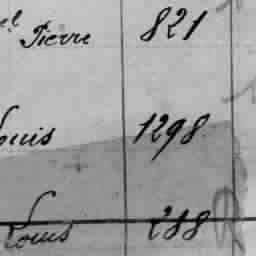 el Pierre 821
Louis 1298
Louis 288